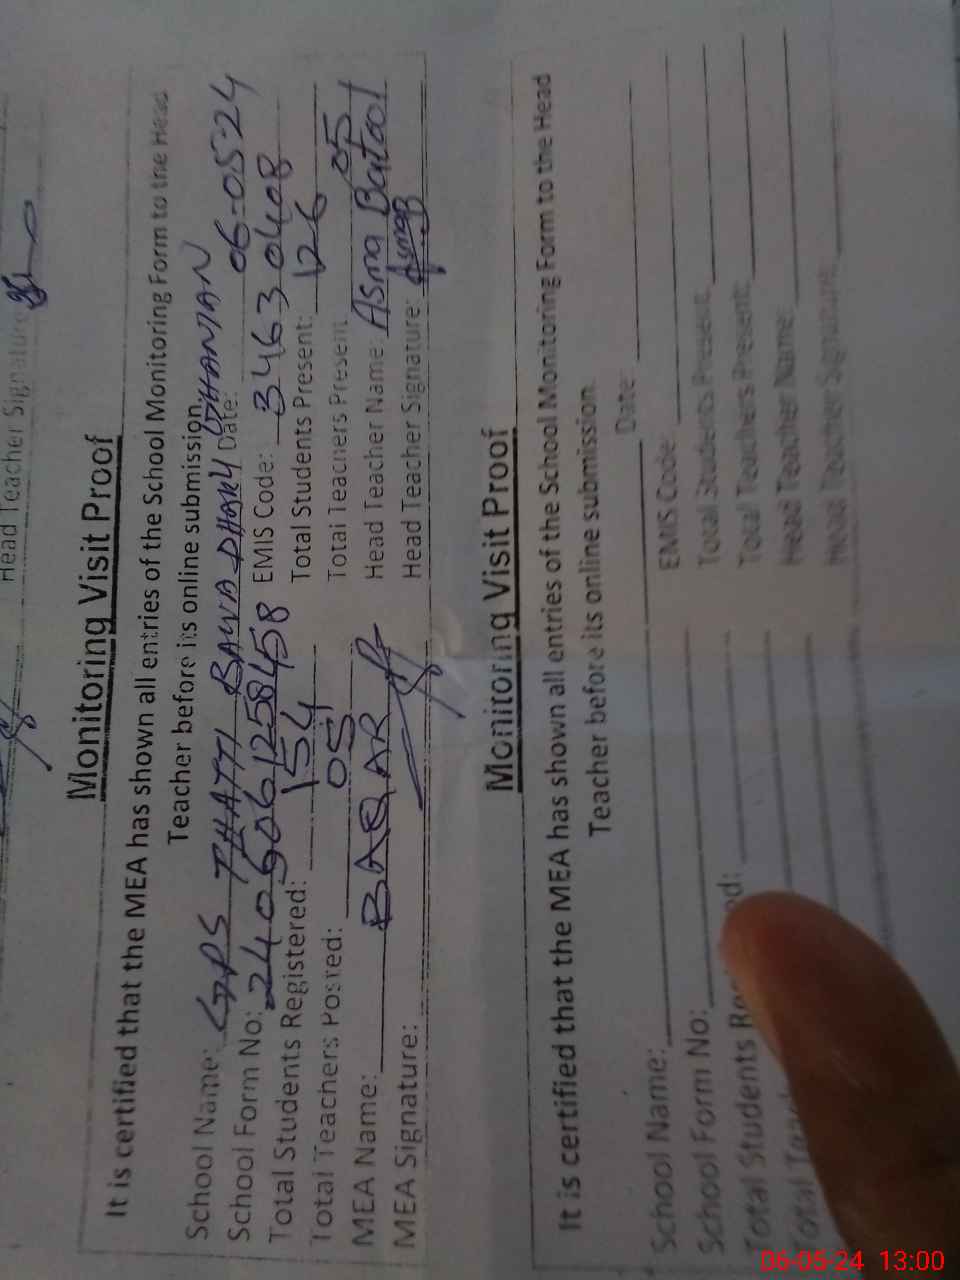 Head Teacher Signature:
Monitoring Visit Proof
It is certified that the MEA has shown all entries of the School Monitoring Form to the Head
Teacher before its online submission.
School Name: GPS THATTI BAWA DHARY DHANIAN Date: 06-05-24
School Form No: EMIS Code: 34630408
Total Students Registered: 154 Total Students Present: 126
Total Teachers Posted: 05 Total Teachers Present 05
MEA Name: BAQAR Head Teacher Name: Asma Batool
MEA Signature: Head Teacher Signature: Asma B
Monitoring Visit Proof
It is certified that the MEA has shown all entries of the School Monitoring Form to the Head
Teacher before its online submission.
School Name: Date:
School Form No: EMIS Code:
Total Students Total Students Present:
Total Total Teachers Present:
Head Teacher Name:
Head Teacher Signature:
06-05-24 13:00